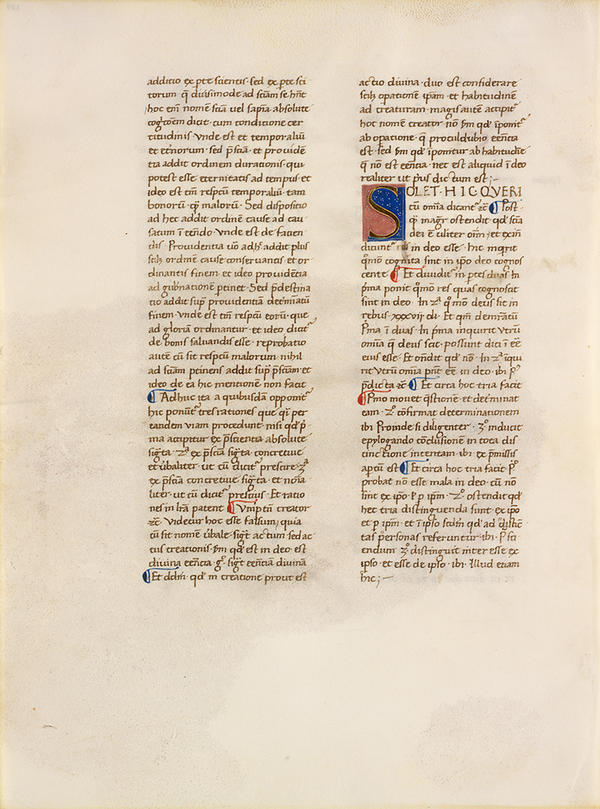 additio ex pte scientis · sed ex pte sci
torum q̃ diuisimode ad sciam se hñt
hoc em̃ nomẽ scia vel sapia absolute
cogtõem dicit · cum conditione cer
titudinis vnde est et temporaliũ
et etnorum · sed pscia · et prouidẽ
tia addit ordinem durationis · qui
potest esse eternitatis ad tempus et
ideo est tm̃ respcũ temporaliũ · tam
bonorũ q̃ malorũ · Sed dispositio
ad hec addit ordinẽ cause ad cau
satum ĩ tendo · vnde est de facien
dis · Prouidentia
scz ordinẽ cause conseruantis et or
dinantis finem et ideo prouidẽcia
ad gubnatione ptinet · Sed pdestina
tio addit sup prouidentiã determatũ
finem · vnde est tm̃ respcũ eorũ · que
ad gloriã ordinantur · et ideo dicit
de bonis saluandis esse · reprobatio
autẽ cũ sit respcũ malorum · nihil
ad sciam ptinens addit sup psciam · et
ideo de ea hic mentionẽ non facit
Adhuc ita a quibusdã opponit
hic ponunt tres rationes que qr̃ per
eandem viam procedunt · nisi qd p̃
ma accipitur ex psciencia absolute
sigta · 2ª ex pscia sigta · concretiue
et vbaliter · ut cũ dicit presciẽ · 3ª
ex pscia concretiue sigta · et noĩa
liter · ut cũ dicit prescius · Et ratio
nes in lrã patent · Vnptm̃ creator
etc̃ videtur hoc esse falsum · quia
cũ sit nomẽ vbale · sigt actum · sed ac
tus creationis · fm qd est in deo · est
diuina eẽncia gº sigt eẽnciã diuinã
Et dd̃m · qd in creatione prout est
actio diuina · duo est considerare
scz opationẽ ipam · et habitudinẽ
ad creaturam · magis autẽ accipit
hoc nomẽ creator · nõ fm qd ĩponit
ab opatione · q̃ proculdubio eẽncia
est · sed fm qd ĩponitur ab habitudĩe
q̃ nõ est eẽncia · nec est aliquid ĩ deo
realiter ut pus dictum est ;-
SOLET · HIC QVERI
cũ omĩa dicant etc̃ Post
q̃ magr̃ ostendit qd scia
dei ẽ vĩliter oĩm · et exĩn
dicunt res in deo esse · hic inqrit
qũmo cognita sint in ipo deo cognos
cente · Et diuidit in ptes duas In
pma ponit qũmo res quas cognoscit
sint in deo · In 2ª qũmo deus sit in
rebus · xxxvij di · Et qm̃
pma ĩ duas · In pma inquirit vtrũ
omĩa q̃ deus scit · possunt dici ĩ eẽ
eius esse · Et ondit qd nõ · In 2ª ĩqui
rit vtrũ omĩa ptnt eẽ in deo · ibi
pdicta etc̃ · Et circa hoc tria facit
Pmo mouet qstione · et determinat
eam · 2º confirmat determinationem
ibi Proinde si diligenter · 3º inducit
epylogando cõclusionẽ in tota dis
tinctione intentam · ibi ex pmissis
aptũ est · Et circa hoc tria facit · pº
probat nõ esse mala in deo · cũ nõ
sint ex ipo · p ipm · 2º ostendit qd
hec tria distinguenda sunt · ex ipo
et p ipm · et ĩ ipo scdm qd ad distĩc
tas psonas referuntur · ibi · Psci
endum 3º distinguit inter esse ex
ipso · et esse de ipso · ibi · Illud etiam
hic ;-